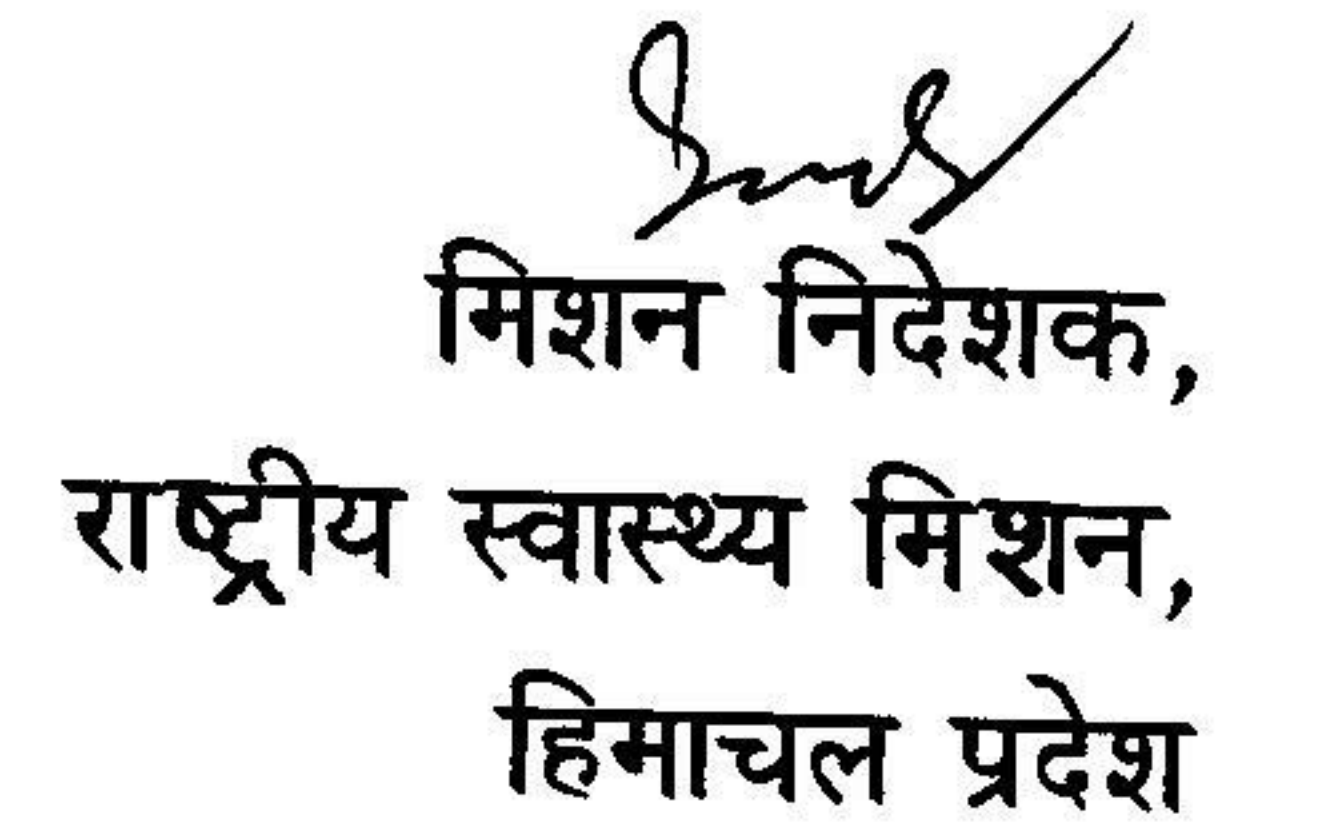 मिशन निदेशक,
राष्ट्रीय स्वास्थ्य मिशन,
हिमाचल प्रदेश